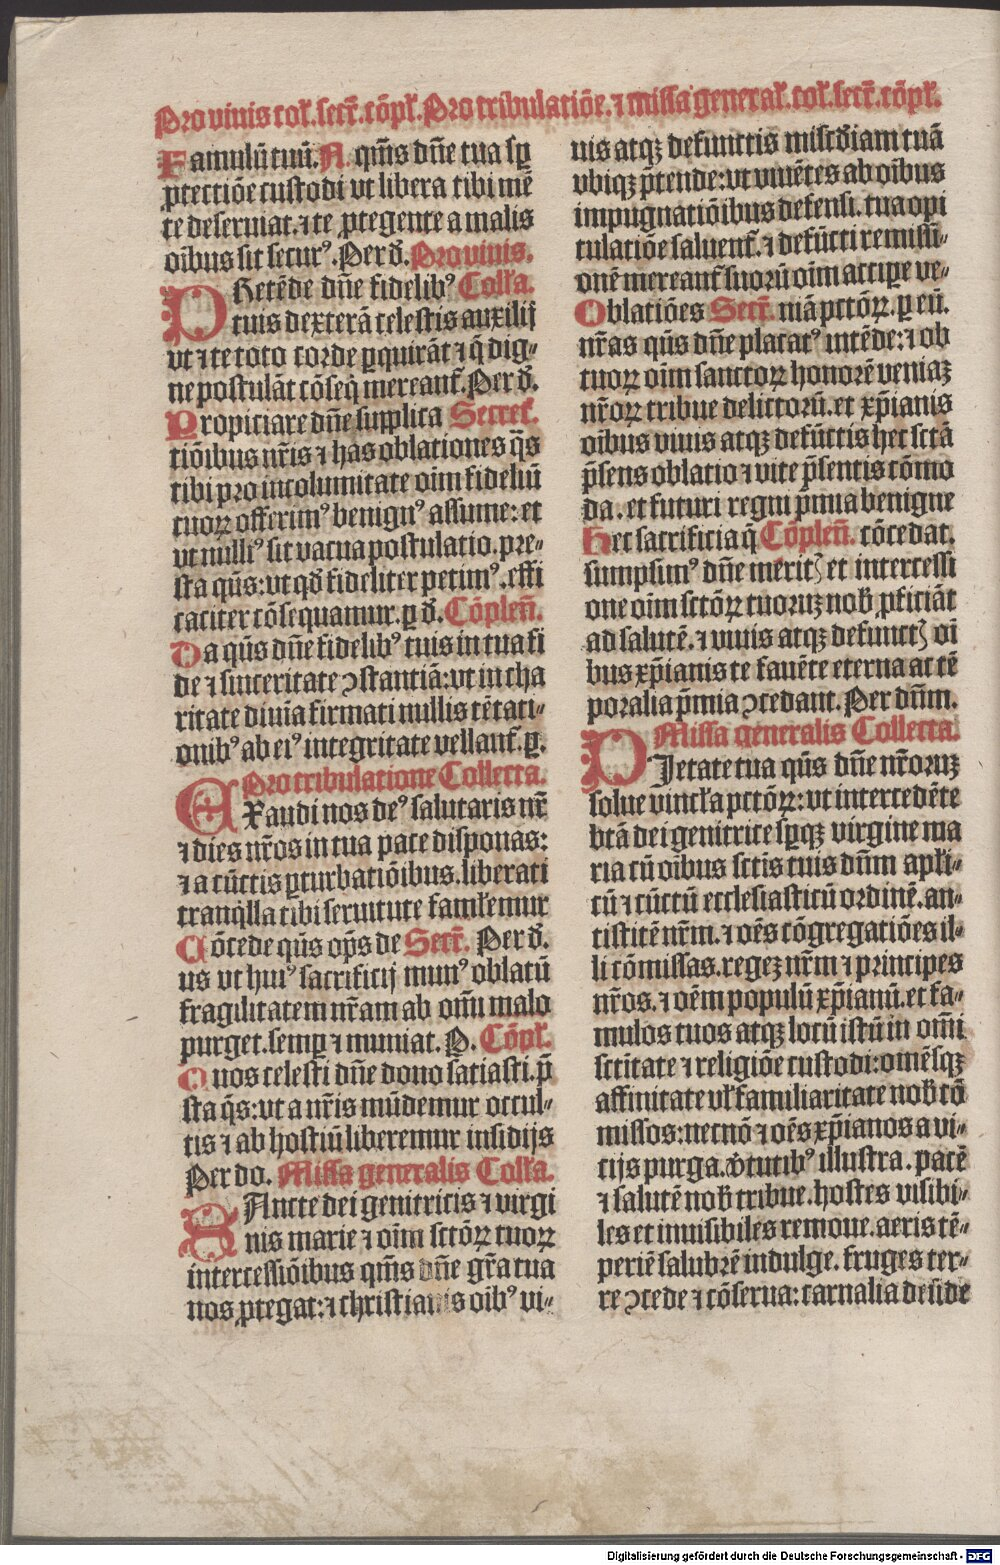 Pro vinis col̄. secr̄. cōpl̄. Pro tribulatiōe. ⁊ missa general̄. col̄. secr̄. cōpl̄.
Famulū tuū. N. qm̄s dn̄e tua sꝑ
ꝓtectiōe custodi vt libera tibi mē
te deseruiat. ⁊ te ꝓtegente a malis
oībus sit securꝰ. Per d̄. Pro viuis.
PRetēde dn̄e fidelibꝰ Coll̄a.
tuis dexterā celestis auxilij
vt ⁊ te toto corde ꝑquirāt ⁊ q̄ dig-
ne postulāt cōseq̄ mereant̄. Per d̄.
Propiciare dn̄e supplica Secret̄.
tiōibus nr̄is ⁊ has oblationes q̄s
tibi pro incolumitate oīm fideliū
tuoꝝ offerimꝰ benignꝰ assume: et
vt nulliꝰ sit vacua postulatio. pre-
sta qūs: vt qd̄ fideliter petimꝰ. effi
caciter cōsequamur. ꝑ d̄. Cōplen̄.
Da qūs dn̄e fidelibꝰ tuis in tua fi
de ⁊ sinceritate ꝯstantiā: vt in cha
ritate diuīa firmati nullis tētati-
onibꝰ ab eiꝰ integritate vellant̄. ꝑ.
Pro tribulatione Collecta.
EXaudi nos deꝰ salutaris nr̄
⁊ dies nr̄os in tua pace disponas:
⁊ a cūctis ꝑturbatiōibus. liberati
tranq̄lla tibi seruitute faml̄emur
Cōcede qūs op̄s de Secr̄. Per d̄.
us vt huiꝰ sacrificij munꝰ oblatū
fragilitatem nr̄am ab om̄i malo
purget. semꝑ ⁊ muniat. P. Cōpl̄.
Quos celesti dn̄e dono satiasti. p̄
sta q̄s: vt a nr̄is mūdemur occul-
tis ⁊ ab hostiū liberemur insidijs
Per do. Missa generalis Coll̄a.
SAncte dei genitricis ⁊ virgi
nis marie ⁊ oīm sctōꝝ tuoꝝ
intercessiōibus qm̄s dn̄e gr̄a tua
nos ꝓtegat: ⁊ christianis oībꝰ vi-
uis atqꝫ defunctis misc̄diam tuā
vbiqꝫ p̄tende: vt viuētes ab oībus
impugnatiōibus defensi. tua opi
tulatiōe saluent̄. ⁊ defūcti remissi-
onē mereant̄ suoꝝ oīm accipe ve-
Oblatiōes Secr̄. niā pctōꝝ. ꝑ eū.
nr̄as qūs dn̄e placatꝰ intēde: ⁊ ob
tuoꝝ oīm sanctoꝝ honorē veniaꝫ
nr̄oꝝ tribue delictorū. et xp̄ianis
oībus viuis atqꝫ defūctis hec sctā
p̄sens oblatio ⁊ vite p̄sentis cōmo
da. et futuri regni p̄mia benigne
Hec sacrificia q̄ Cōplen̄. cōcedat.
sumpsimꝰ dn̄e merit̉ et intercessi
one oīm sctōꝝ tuoruꝫ nob̄ ꝓficiāt
ad salutē. ⁊ viuis atqꝫ defunct̉ oī
bus xp̄ianis te fauēte eterna ac tē
poralia p̄mia ꝯcedant. Per dn̄m.
Missa generalis Collecta.
PIetate tua qūs dn̄e nr̄oruꝫ
solue vincl̄a pctōꝝ: vt intercedēte
btā dei genitrice sꝑqꝫ virgine ma
ria cū oībus sctis tuis dn̄m apl̄i-
cū ⁊ cūctū ecclesiasticū ordinē. an-
tistitē nr̄m. ⁊ oēs cōgregatiōes il-
li cōmissas. regeꝫ nr̄m ⁊ principes
nr̄os. ⁊ oēm populū xp̄ianū. et fa-
mulos tuos atqꝫ locū istū in om̄i
sctitate ⁊ religiōe custodi: omēsqꝫ
affinitate vl̄ familiaritate nob̄ cō
missos: necnō ⁊ oēs xp̄ianos a vi-
cijs purga. v̄tutibꝰ illustra. pacē
⁊ salutē nob̄ tribue. hostes visibi-
les et inuisibiles remoue. aeris tē-
periē salubrē indulge. fruges ter-
re ꝯcede ⁊ cōserua: carnalia deside
Digitalisierung gefördert durch die Deutsche Forschungsgemeinschaft - DFG